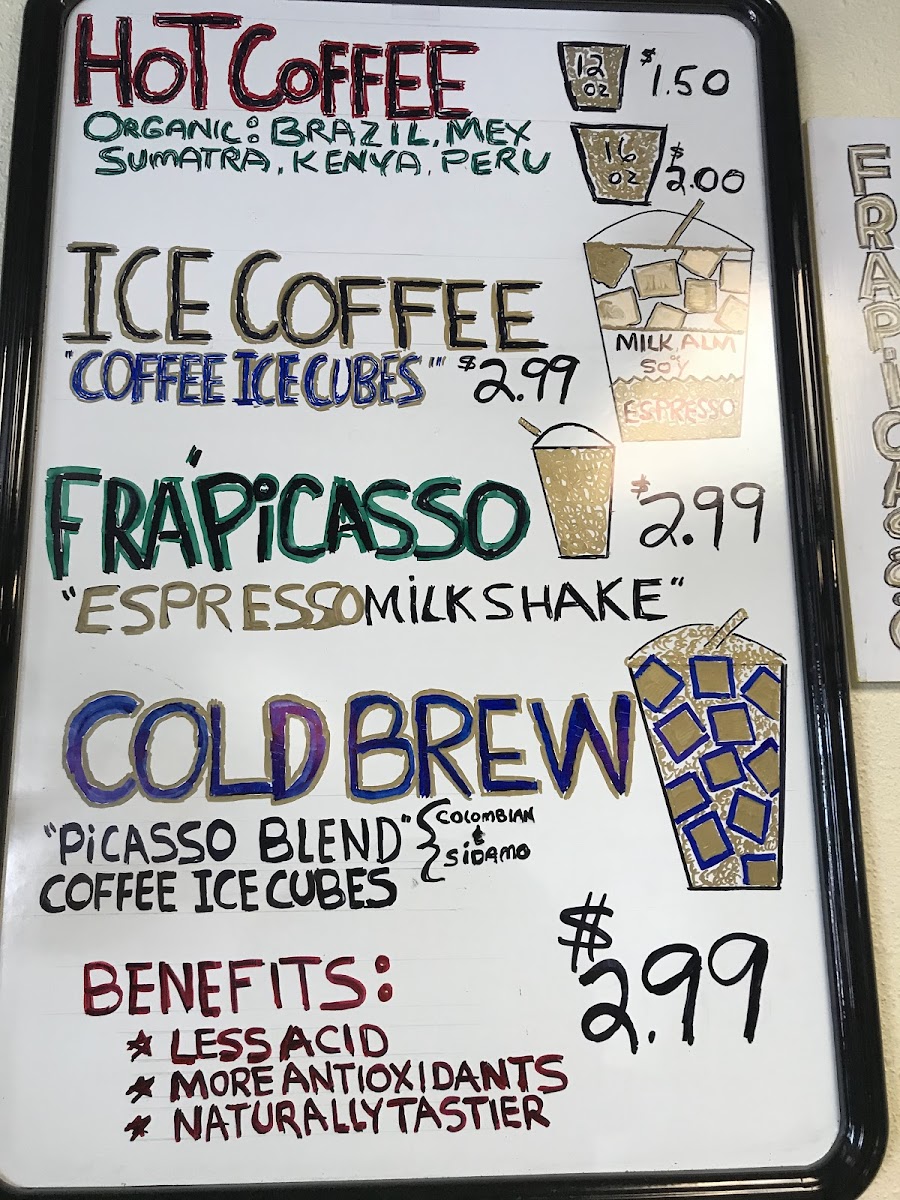 HOT COFFEE
12 OZ $1.50
ORGANIC: BRAZIL, MEX
SUMATRA, KENYA, PERU
16 OZ $2.00
ICE COFFEE
"COFFEE ICE CUBES" $2.99
MILK, ALM
or
SOY
ESPRESSO
"FRAPiCASSO $2.99
"ESPRESSO MiLKSHAKE"
COLD BREW
"PiCASSO BLEND" { COLOMBIAN
&
SiDAMO
COFFEE ICE CUBES
$2.99
BENEFITS:
* LESS ACID
* MORE ANTIOXIDANTS
* NATURALLY TASTIER
FRAPiCASSO